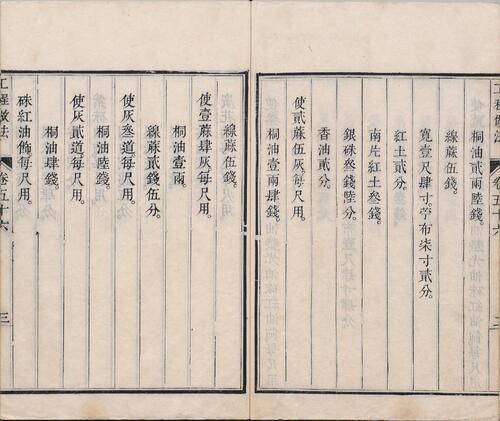 桐油貳兩陸錢。
線蔴伍錢。
寬壹尺肆寸苧布柒寸貳分。
紅土貳分。
南片紅土叁錢。
銀硃叁錢陸分。
香油貳分。
使貳蔴伍灰每尺用。
桐油壹兩肆錢。
線蔴伍錢。
使壹蔴肆灰每尺用。
桐油壹兩。
線蔴貳錢伍分。
使灰叁道每尺用。
桐油陸錢。
使灰貳道每尺用。
桐油肆錢。
硃紅油飾每尺用。
工程做法
卷五十六
三